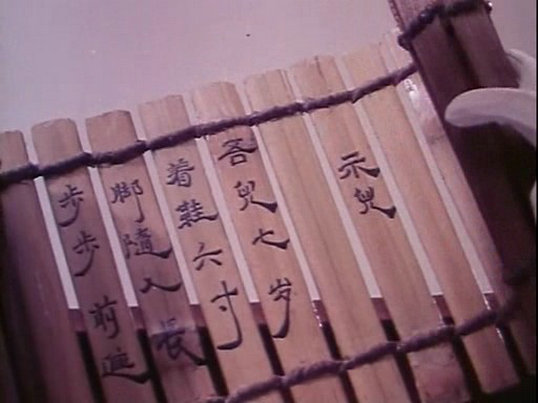 示兒
吾兒七岁
着鞋六寸
脚隨人長
步步前進